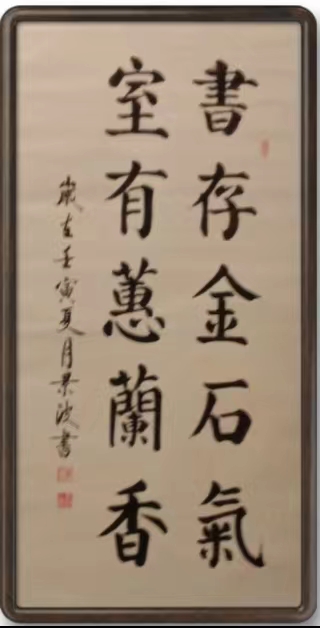 書存金石氣
室有蕙蘭香
歲在壬寅夏月景波書